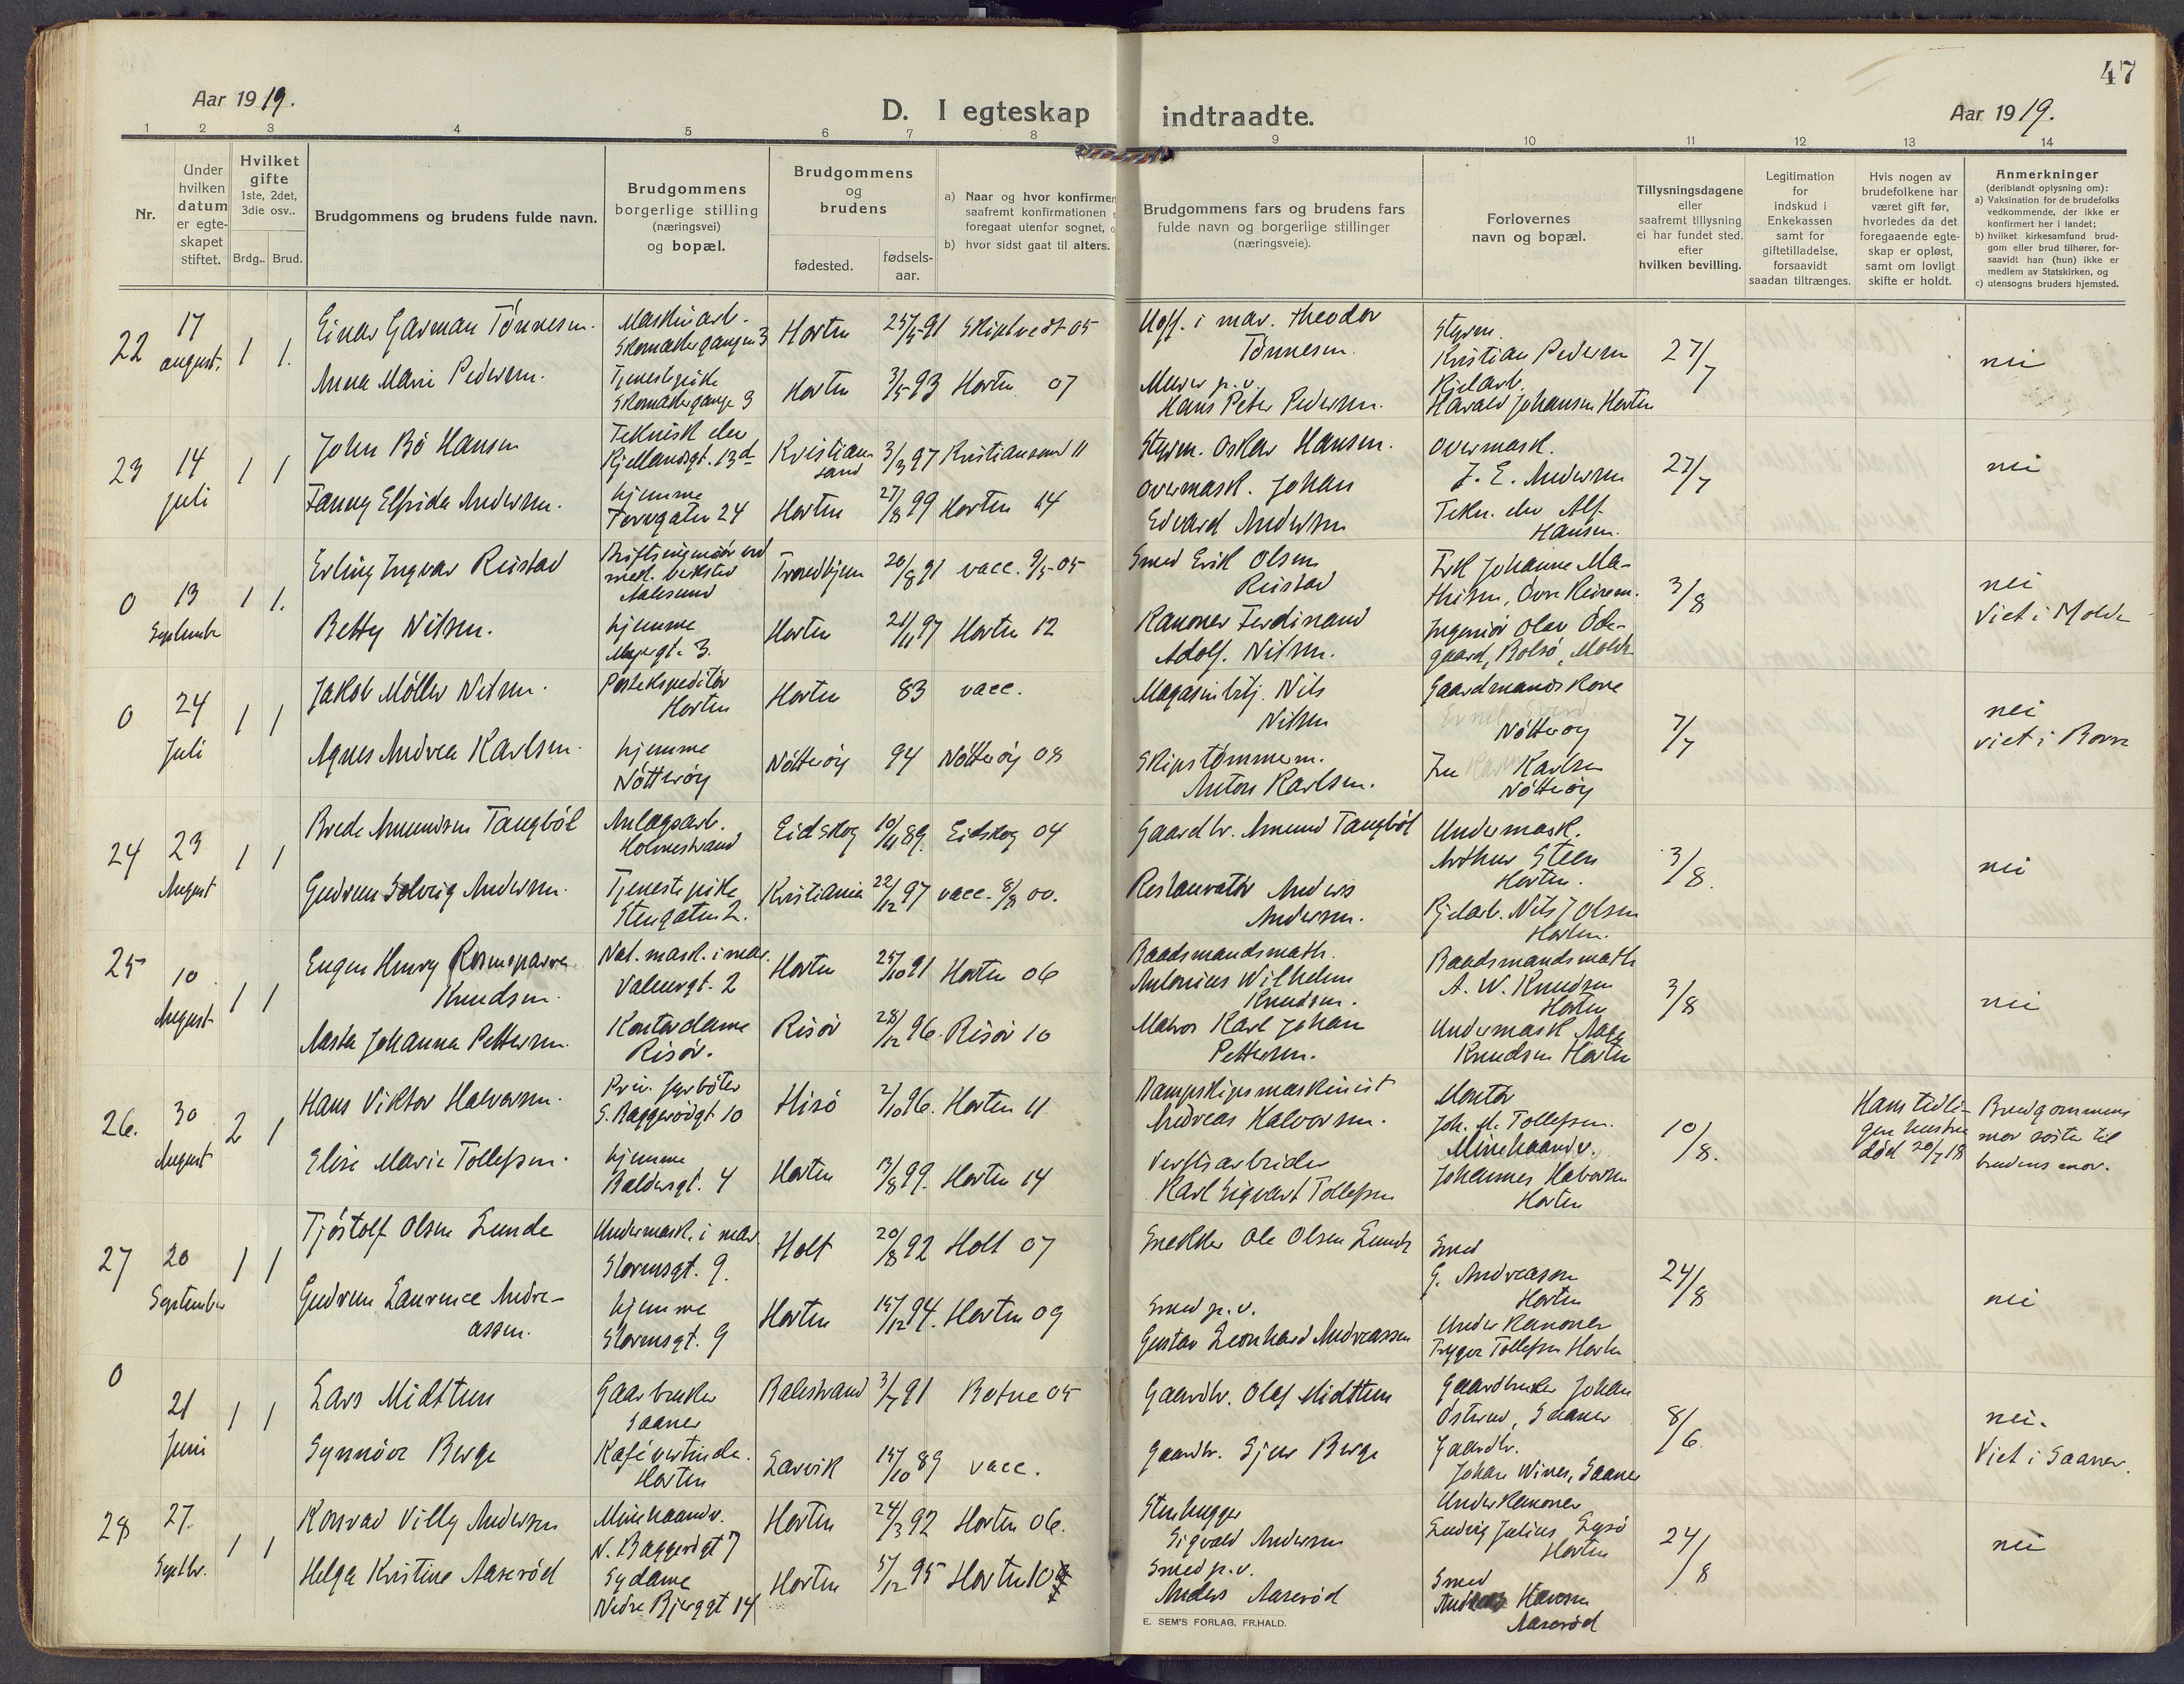 47
Aar 1919.
D. I egteskap indtraadte.
Aar 1919.
1 2 3 4 5 6 7 8 9 10 11 12 13 14
Nr.
Under hvilken datum er egteskapet stiftet.
Hvilket gifte 1ste, 2det, 3die osv..
Brdg.. Brud.
Brudgommens og brudens fulde navn.
Brudgommens borgerlige stilling (næringsvei) og bopæl.
Brudgommens og brudens
fødested.
fødsels-aar.
a) Naar og hvor konfirmer
saafremt konfirmationen
foregaat utenfor sognet,
b) hvor sidst gaat til alters.
Brudgommens fars og brudens fars
fulde navn og borgerlige stillinger
(næringsveie).
Forlovernes
navn og bopæl.
Tillysningsdagene
eller
saafremt tillysning
ei har fundet sted,
efter
hvilken bevilling.
Legitimation
for
indskud i
Enkekassen
samt for
giftetilladelse,
forsaavidt
saadan tiltrænges.
Hvis nogen av
brudefolkene har
været gift før,
hvorledes da det
foregaaende egte-
skap er opløst,
samt om lovligt
skifte er holdt.
Anmerkninger
(deriblandt oplysning om):
a) Vaksination for de brudefolks
vedkommende, der ikke er
konfirmert her i landet;
b) hvilket kirkesamfund brud-
gom eller brud tilhører, for-
saavidt han (hun) ikke er
medlem av Statskirken, og
c) utensogns bruders hjemsted.
22 17 august. 1 1.
Einar Garman Tönnesen.
Maskinarb. Skomakergangen 3
Horten 25/5 91 Skiptvedt 05
Uoff. i mar. Theodor Tönnesen.
Styrm. Kristian Pedersen
27/7
nei
Anna Marie Pedersen.
Tjenestepike Skomakergange 3
Horten 3/5 93 Horten 07
Murer p.v. Hans Peter Pedersen.
Kjelarb. Harald Johansen Horten
23 14 juli 1 1
John Bö Hansen
Teknisk elev Kjellandsgt. 13d
Kristiansand 3/3 97 Kristiansund 11
Styrm. Oskar Hansen.
Overmask. J. E. Andersen
27/7
nei
Fanny Elfrida Andersen.
hjemme Torvgaten 24
Horten 27/8 99 Horten 14
Overmask. Johan Edvard Andersen
Tekn. elev Alf Hansen.
0 13 September 1 1.
Erling Ingvar Reistad
Driftsingeniör ved mek. verksted Aalesund
Trondhjem 20/8 91 vacc. 9/5 05
Smed Erik Olsen Reistad
Frk Johanne Mathisen,
3/8
nei
Viet i Molde
Betty Nilsen.
hjemme
Horten 21/11 97 Horten 12
Kanoner Ferdinand Adolf. Nilsen.
Ingeniör Olav Ödegaard, Bolsö, Molde
0 24 Juli 1 1
Jakob Möller Nilsen.
Postekspeditör Horten
Horten 83 vacc.
Magasinbtj. Nils Nilsen
Gaardmandskone
Nötteröy
7/7
nei
viet i Borre
Agnes Andrea Karlsen.
hjemme Nötteröy
Nötteröy 94 Nötteröy 08
Skipstömmerm. Anton Karlsen.
Fru Karlsen Nötteröy
24 23 August 1 1
Brede Amundsen Tangböl
Anlægsarb. Holmestrand
Eidskog 10/11 89. Eidskog 04
Gaardbr. Amund Tangböl
Undermask. Arthur Steen Horten.
3/8.
nei
Gudrun Solveig Andersen.
Tjenestepike Stengaten 2.
Kristiania 22/12 97 vacc. 8/8 00.
Restauratör Anders Andersen.
Kjelarb. Nils J Olsen Horten.
25 10 August 1 1
Eugen Henry Knudsen.
Nat. mask. i mar. Valeurgt. 2
Horten 25/10 91 Horten 06
Baadsmandsmath. Antonius Wilhelm Knudsen.
Baadsmandsmath A. W. Knudsen Horten
3/8
nei
Aasta Johanna Pettersen.
Kontordame Risör.
Risör 28/12 96. Risör 10
Matros Karl Johan Pettersen.
Undermask Aage Knudsen Horten
26. 30 August 2 1
Hans Viktor Halvorsen.
Priv. fyrböter S. Baggerödgt 10
Hisö 2/10 96. Horten 11
Dampskipsmaskinist Andreas Halvorsen.
Montör Joh. M. Tollefsen.
10/8.
Hans tidligere hustru död 20/7 18
Brudgommens mor söster til brudens mor.
Elise Marie Tollefsen.
hjemme Baldersgt. 4
Horten 13/8 99. Horten 14
Verftsarbeider Karl Sigvart Tollefsen
Minehaandv. Johannes Halvorsen Horten
27 20 September 1 1
Tjöstolf Olsen Lunde
Undermask. i mar. Storensgt. 9.
Holt 20/8 92 Holt 07
Snekker Ole Olsen Lunde
Smed G. Andreassen Horten
24/8
nei
Gudrun Laurence Andreassen.
hjemme Storensgt. 9
Horten 15/12 94. Horten 09
Smed p.v. Gustav Leonhard Andreassen
Underkanoner Trygve Tollefsen Horten
0 21 Juni 1 1
Lars Midttun
Gaarbruker Saaner
Balestrand 3/7 91 Botne 05
Gaardbr. Olaf Midttun
Gaardbruker Johan Österud, Saaner
8/6.
nei.
Viet i Saaner.
Synnöve Berge
Kafévertinde. Horten
Lavvik 15/10 89 vacc.
Gaardbr. Sjur Berge
Gaardbr. Johan Wines, Saaner
28 27. Septbr. 1 1
Konrad Villy Andersen
Minehaandv. N. Baggerödgt 7
Horten 24/3 92 Horten 06.
Stenhugger Sigvald Andersen
Underkanoner Ludvig Julius Lysö Horten
24/8
nei
Helga Kristine Aaserød
Sydame Nedre Bjerggt 14
Horten 5/12 95 Horten 10
Smed p.v. Anders Aaserød
Smed Hansen Aaserød
E. SEM'S FORLAG, FR.HALD.